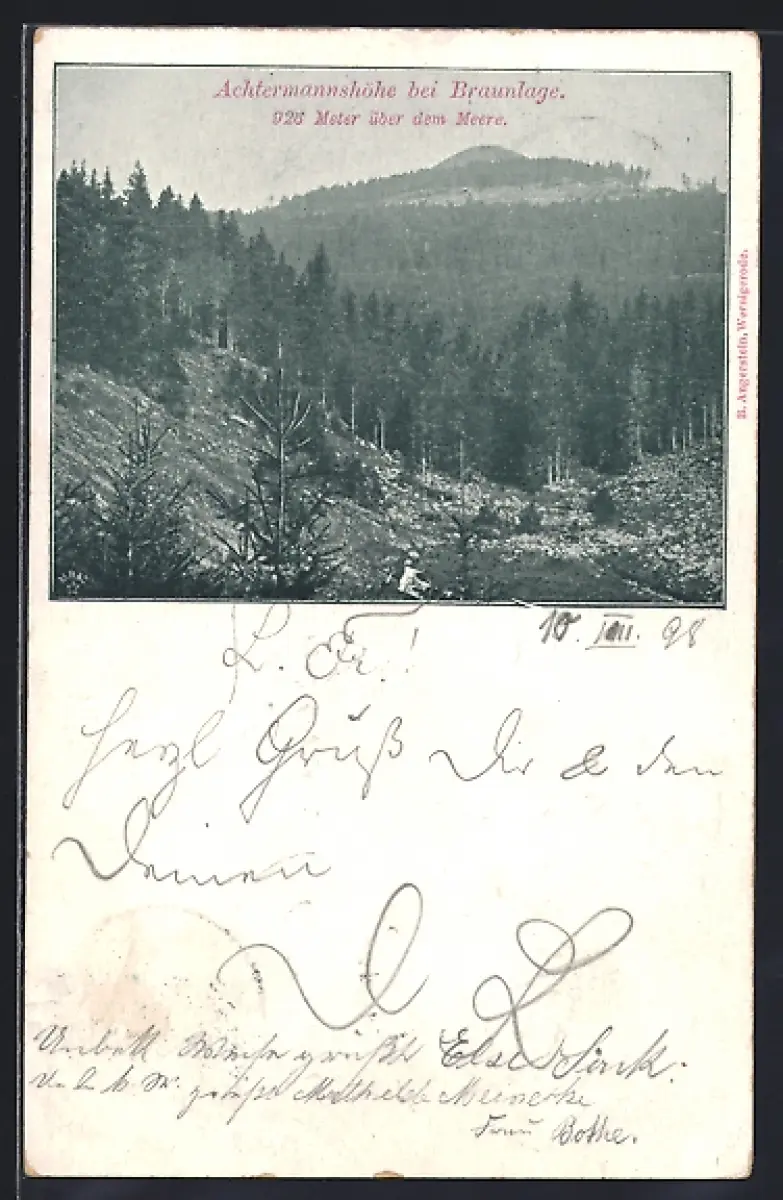 Achtermannshöhe bei Braunlage.
926 Meter über dem Meere.
R. Angerstein, Wernigerode.
10. VIII. 98
L. Fr.!
Herzl Gruß Dir & den
Deinen
D L
grüßt Else
grüßt Mathilde Meinecke
Frau Bothe.